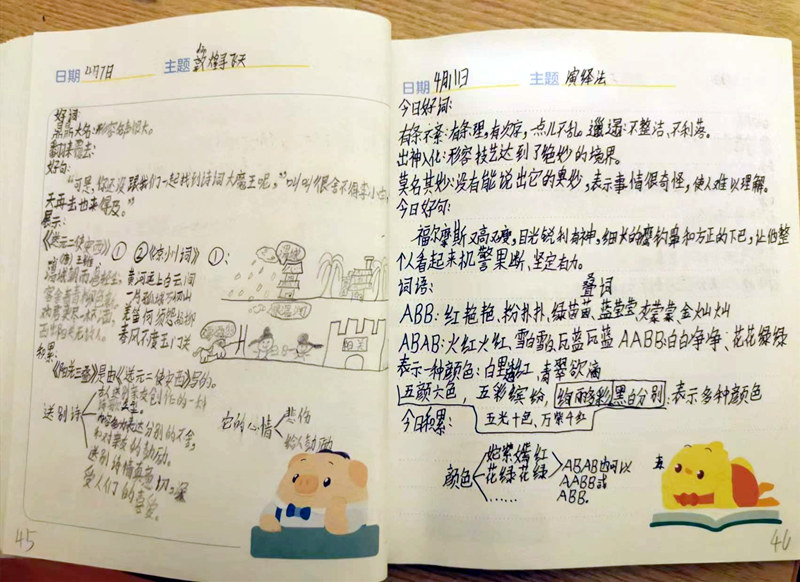 日期 4月7日 主题 敦煌寻飞天
好词
翻来覆去:
好句:
"可是,你还没跟我们一起找到诗词大魔王呢,"叫叫很舍不得李小白
天再去也来得及。"
展示:
《送元二使安西》 ① ② 《凉州词》 ①:
渭城朝雨浥轻尘, 黄河远上白云间
客舍青青柳色新。 一片孤城万仞山
劝君更尽一杯酒, 羌笛何须怨杨柳
西出阳关无故人。 春风不度玉门关
积累:
《阳关三叠》是由《送元二使安西》写的。
送别诗
表达分别的不舍,
和对朋友的鼓励。
送别诗情真意切,深
受人们的喜爱。
它的心情 悲伤
给人鼓励
45
日期 4月11日 主题 演绎法
今日好词:
有条不紊:有条理,有次序,一点儿不乱。邋遢:不整洁、不利落。
出神入化:形容技艺达到了绝妙的境界。
莫名其妙:没有能说出它的奥妙,表示事情很奇怪,使人难以理解。
今日好句:
福尔摩斯又高又瘦,目光锐利有神,细长的鹰钩鼻和方正的下巴,让他整
个人看起来机警果断、坚定有力。
词语: 叠词
ABB:红艳艳、粉扑扑、绿苗苗、蓝莹莹、灰蒙蒙、金灿灿
ABAB:火红火红、雪白雪白、瓦蓝瓦蓝 AABB:白白净净、花花绿绿
表示一种颜色:白里透红、青翠欲滴
五颜六色,五彩缤纷,绚丽多彩 黑白分明:表示多种颜色
今日积累: 五光十色,万紫千红
颜色 姹紫嫣红
花绿花绿
……
ABAB也可以
AABB或
ABB。
46